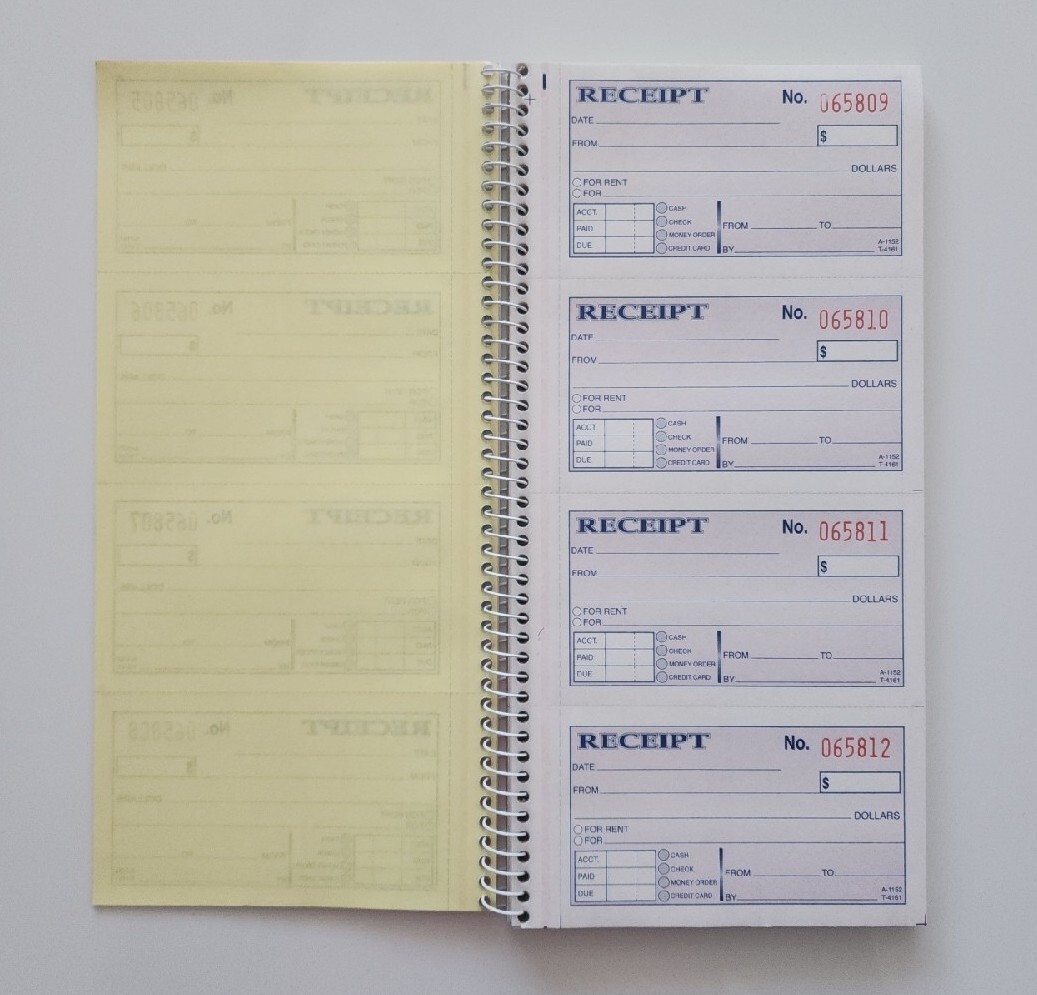 065805 No. RECEIPT
$
065806 No. RECEIPT
$
065807 No. RECEIPT
$
065808 No. RECEIPT
$
RECEIPT No. 065809
DATE
FROM $
DOLLARS
FOR RENT
FOR
ACCT. CASH
CHECK
PAID FROM TO
MONEY ORDER
DUE CREDIT CARD BY A-1152
T-4161
RECEIPT No. 065810
DATE
FROM $
DOLLARS
FOR RENT
FOR
ACCT. CASH
CHECK
PAID FROM TO
MONEY ORDER
DUE CREDIT CARD BY A-1152
T-4161
RECEIPT No. 065811
DATE
FROM $
DOLLARS
FOR RENT
FOR
ACCT. CASH
CHECK
PAID FROM TO
MONEY ORDER
DUE CREDIT CARD BY A-1152
T-4161
RECEIPT No. 065812
DATE
FROM $
DOLLARS
FOR RENT
FOR
ACCT. CASH
CHECK
PAID FROM TO
MONEY ORDER
DUE CREDIT CARD BY A-1152
T-4161